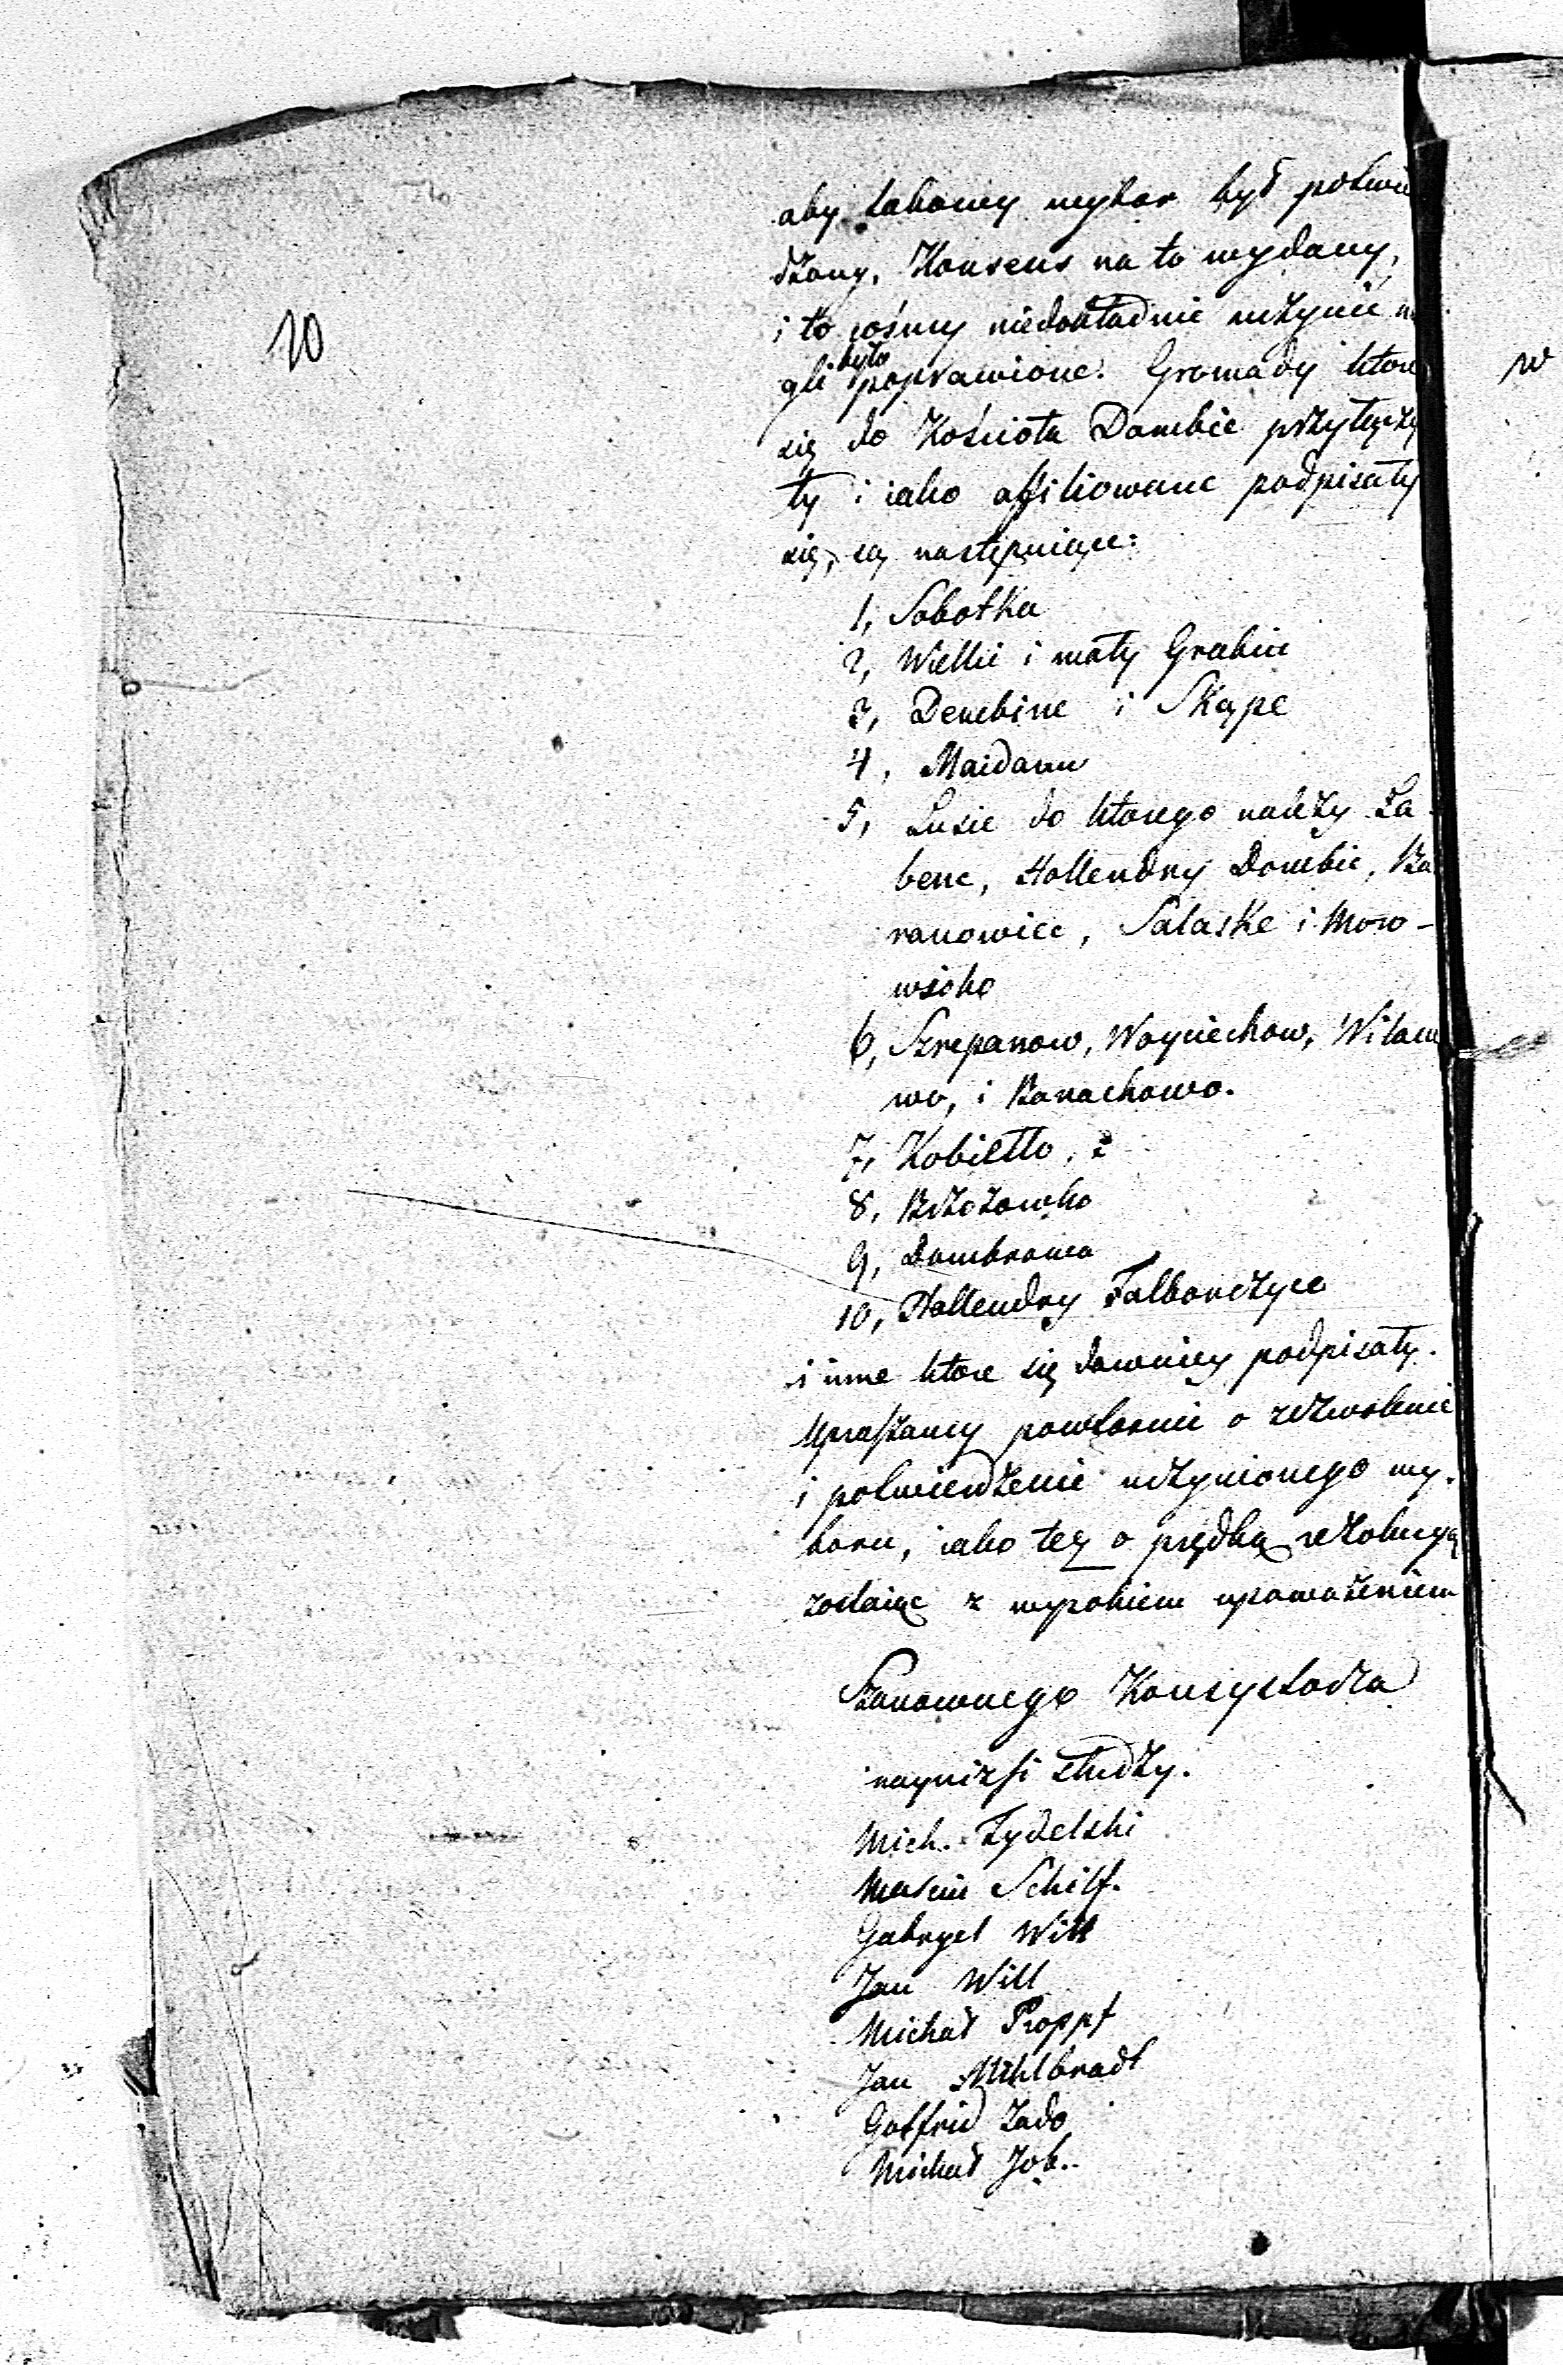 10
aby takowy wybor był potwie
dzony, Konsens na to wydany,
i to cośmy niedokładnie uczynić m
gli było poprawione. Gromady ktore
się do Kościoła Dombie przyłączy
ły i iako affiliowane podpisały
się, są następuiące:
1, Sobotka
2, Wielkie i mały Grabie
3, Dembine i Skąpe
4, Maidanu
5, Lusie do ktorego należy La
bene, Hollendry Dombie, Ba
ranowiec, Salaske i Now-
wsioko
6, Szrepanow, Woyciechow, Witow
wo, i Banachowo.
7, Kobietko,
8, Brzozowko
9, Dombrowa
10, Hollendry Falborczyce
i inne ktore się dawniey podpisały.
Upraszamy powtornie o zezwolenie
i potwierdzenie uczynionego wy-
boru, iako tez o prędką rezolucyą
zostaiąc z wysokiem upoważeniem
Szanownego Konsystorza
naynizsi słudzy.
Mich. Zydelski
Marcin Schilf.
Gabryel Will
Jan Will
Michał Proppf
Jan Mihlbradt
Gotfrid Zado
Michał Job.
w